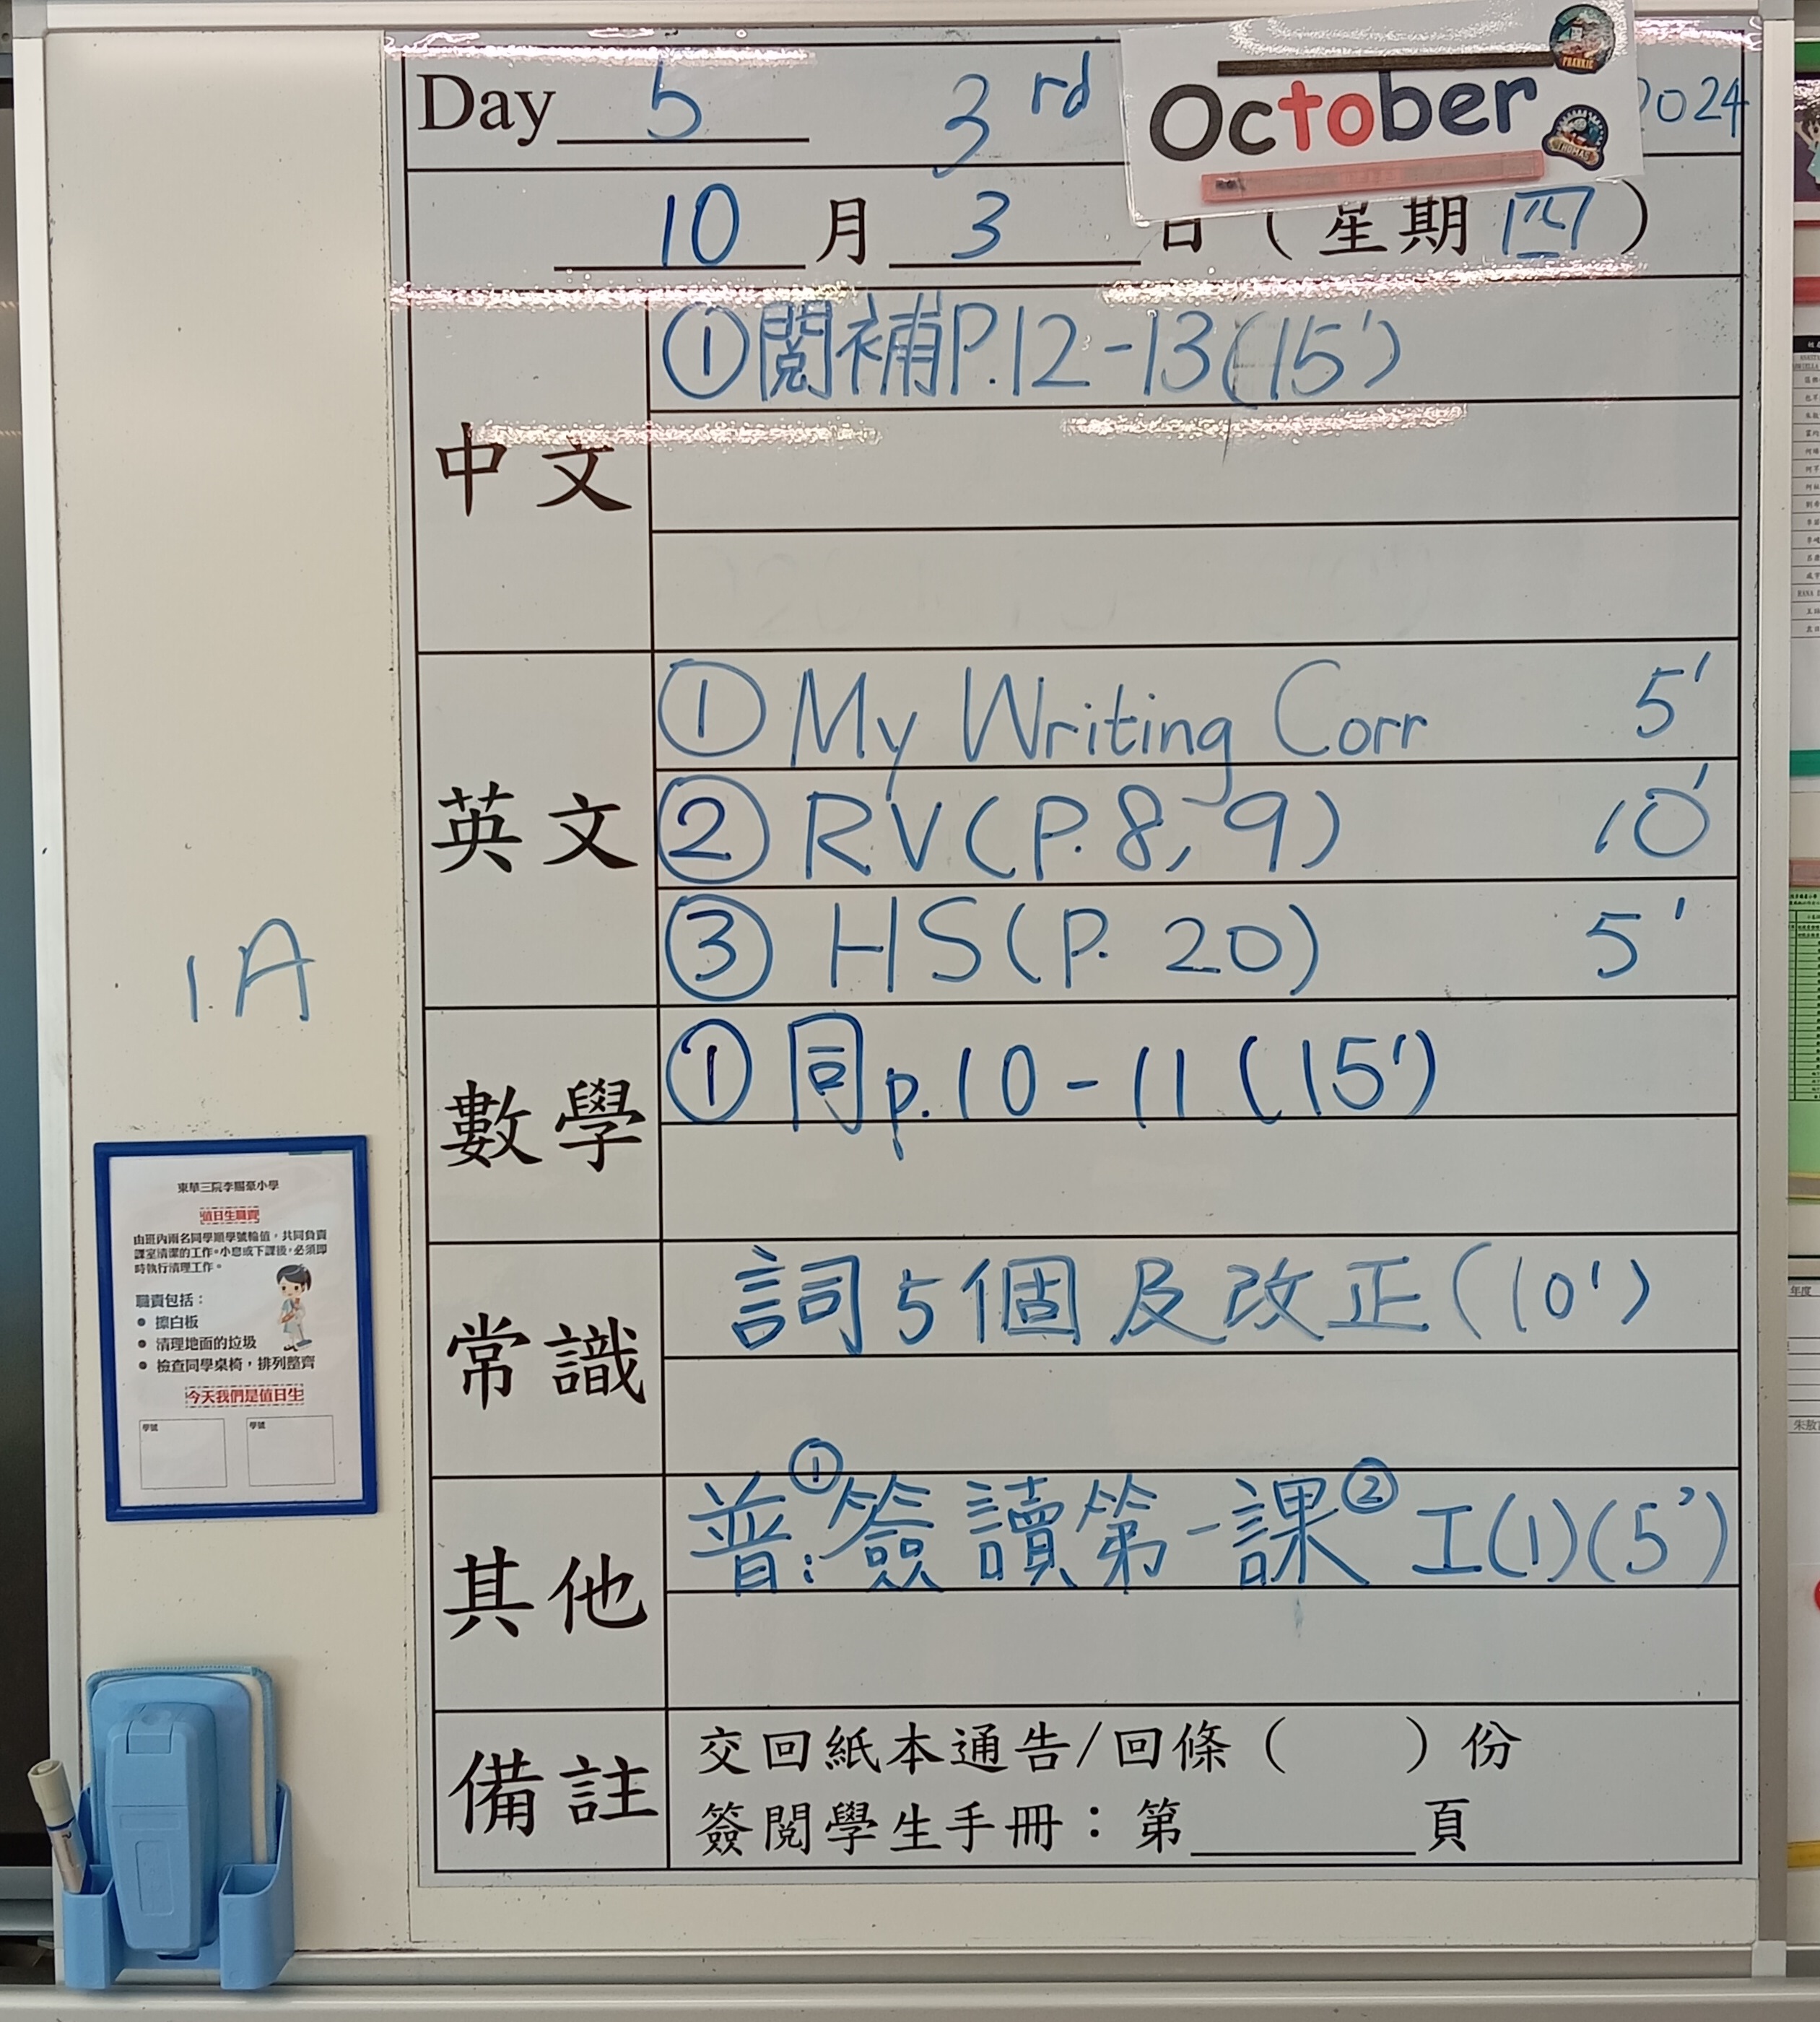 Day 5 3rd October 2024
10 月 3 日 ( 星期 四 )
中文
①閱補P.12-13(15')
英文
① My Writing Corr 5'
② RV(P.8, 9) 10'
③ HS(P. 20) 5'
1A
數學
① 同p.10-11 (15')
常識
詞5個及改正(10')
其他
普:①簽讀第一課② 工(1)(5')
備註
交回紙本通告/回條( )份
簽閱學生手冊:第______頁
東華三院李賜豪小學
值日生職責
由班內兩名同學順學號輪值,共同負責
課室清潔的工作。小息或下課後,必須即
時執行清理工作。
職責包括:
● 擦白板
● 清理地面的垃圾
● 檢查同學桌椅,排列整齊
今天我們是值日生
學號 學號
FRANKIE
THOMAS
年度